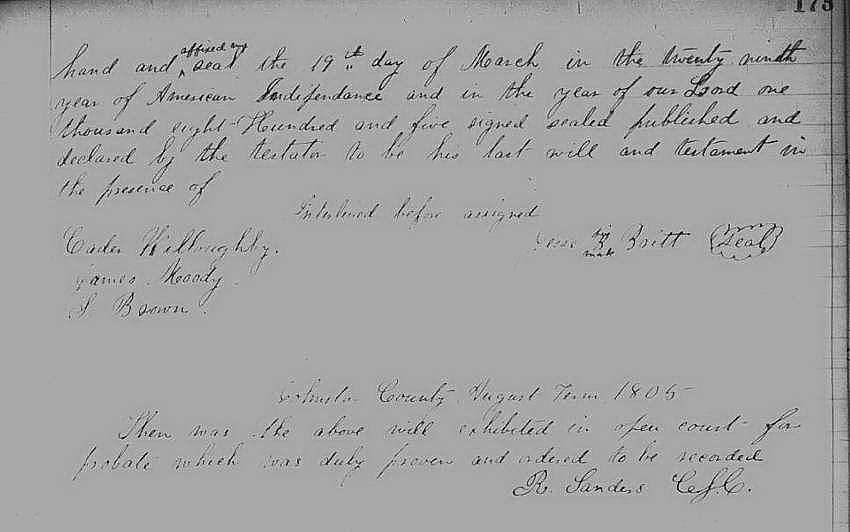 173
hand and affixed my seal the 19th day of March in the twenty ninth
year of American Independance and in the year of our Lord one
thousand eight Hundred and five signed sealed published and
declared by the testator to be his last will and testament in
the presence of
Interlined before assigned
Cader Willoughby. Jesse his X mark Britt (Seal)
James Moody.
S Brown.
Johnston County August Term 1805
Then was the above will exhibited in open court for
probate which was duly proven and ordered to be recorded
R. Sanders C.J.C.